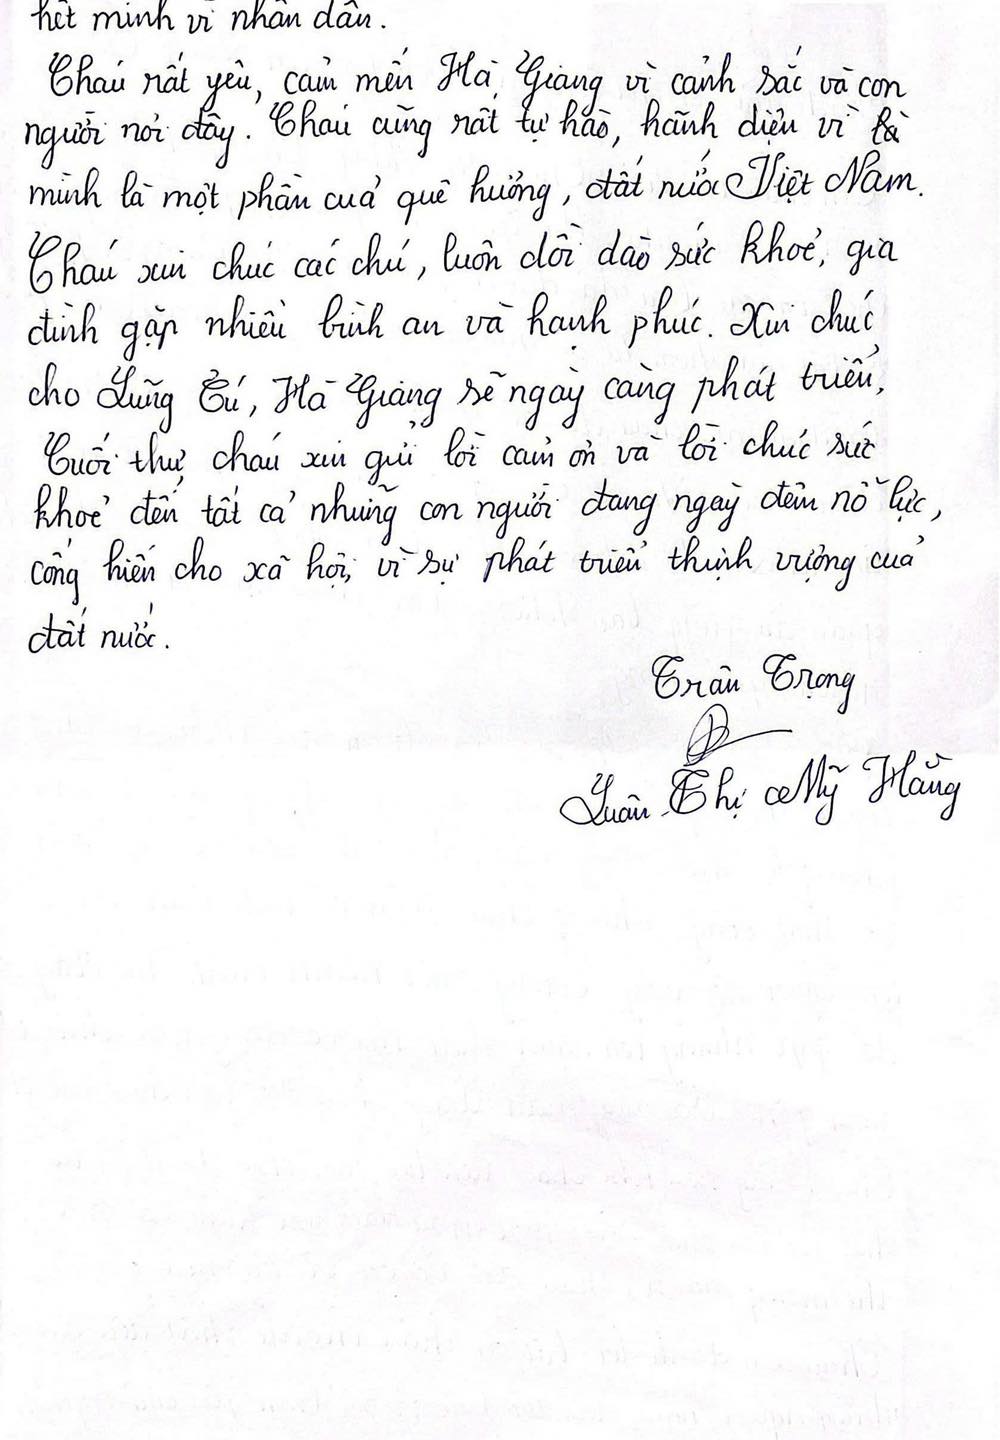 hết mình vì nhân dân.
Cháu rất yêu, cảm mến Hà Giang vì cảnh sắc và con
người nơi đây. Cháu cũng rất tự hào, hãnh diện vì
mình là một phần của quê hương, đất nước Việt Nam.
Cháu xin chúc các chú, luôn dồi dào sức khoẻ, gia
đình gặp nhiều bình an và hạnh phúc. Xin chúc
cho Lũng Cú, Hà Giang sẽ ngày càng phát triển,
Cuối thư, cháu xin gửi lời cảm ơn và lời chúc sức
khoẻ đến tất cả những con người đang ngày đêm nỗ lực,
cống hiến cho xã hội, vì sự phát triển thịnh vượng của
đất nước.
Trân Trọng
Luân Thị Mỹ Hằng